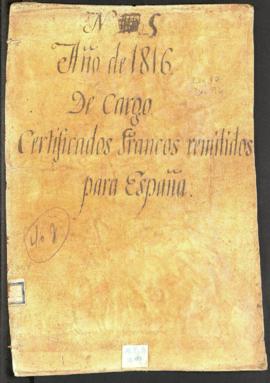 Nº 5
Año de 1816
De Cargo
Certificados Francos remitidos
para España.